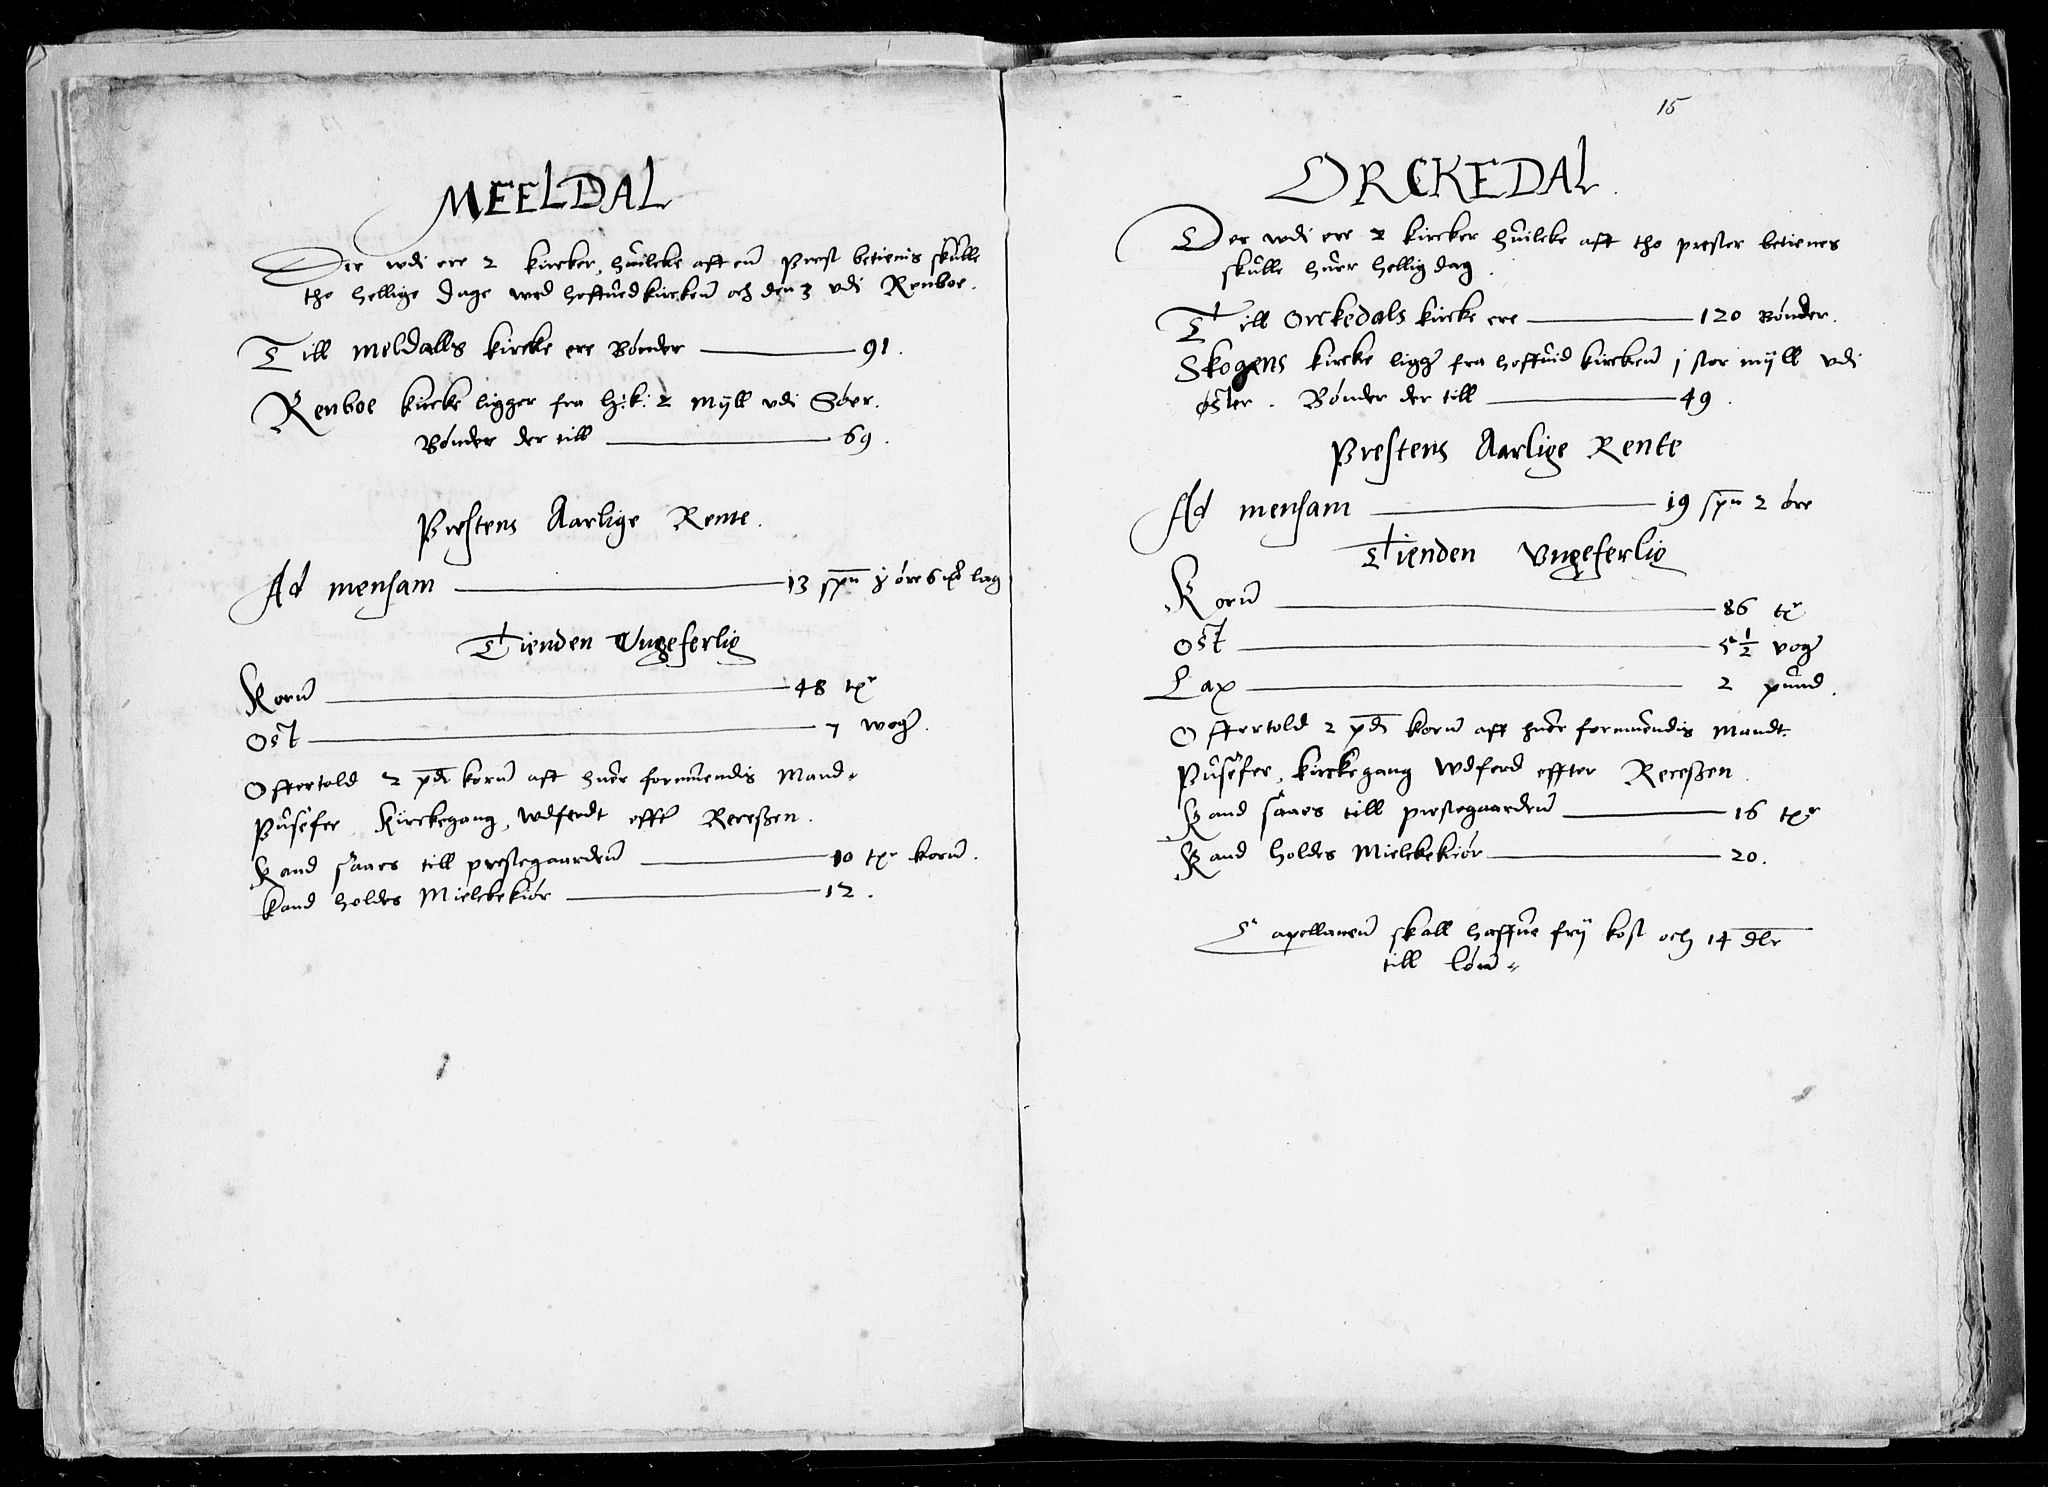 MEELDAL
Der wdi ere 2 kircker, huilcke aff en Prest betienis skulle
tho hellige dage wed hoffued kircken och den 3 vdi Renboe.
Till Meldalls kircke ere Bønder 91.
Renboe kircke ligger fra h: k: 2 mijll vdi Søer.
Bønder der till 69.
Prestens Aarlige Rente.
Ad mensam 13 spn øre 6 lag
Tienden Ungeferlig
Korn 48 tr
Ost 7 woger.
Offertold 2 pd korn aff huer formuendis Mand
Puseser, Kirckegang, wdferdt effter Recessen.
Kand saaes till prestegaarden 10 tr korn.
Kand holdes Mielckekiør 12.
15
ORCKEDAL.
Der wdi ere 2 kircker huilcke aff tho prester betienes
skulle huer hellig dag.
Till Orckedals kircke ere 120 Bønder.
Skogens kircke ligger fra hoffuid kircken j stor mijll vdi
øster. Bønder der till 49.
Prestens Aarlige Rente
Ad mensam 19 spn 2 øre
Tienden Vngeferlig
Korn 86 tr
Ost 5 1/2 voger
Lax 2 pund.
Offertold 2 pd korn aff huer formuendis Mandt.
Puseser, kirckegang wdferd effter Recessen.
Kand saaes till prestegaarden 16 tr
Kand holdes Mielckekiør 20.
Capellanen skall haffue frij kost och 14 dlr
till løn